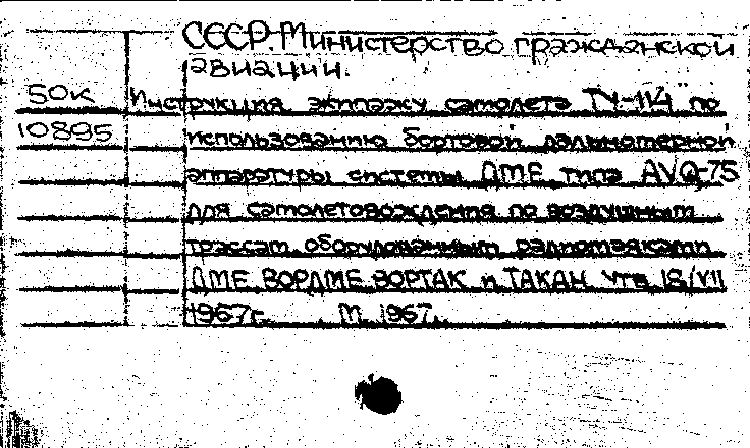 СССР. Министерство гражданской
авиации.
50к Инструкция экипажу самолета ТУ-114 по
10895 использованию бортовой дальномерной
аппаратуры системы ДМЕ типа AVQ-75
для самолетовождения по воздушным
трассам, оборудованным радиомаяками
ДМЕ, ВОРДМЕ, ВОРТАК и ТАКАН. Утв. 18/VII
1967г. М. 1967.